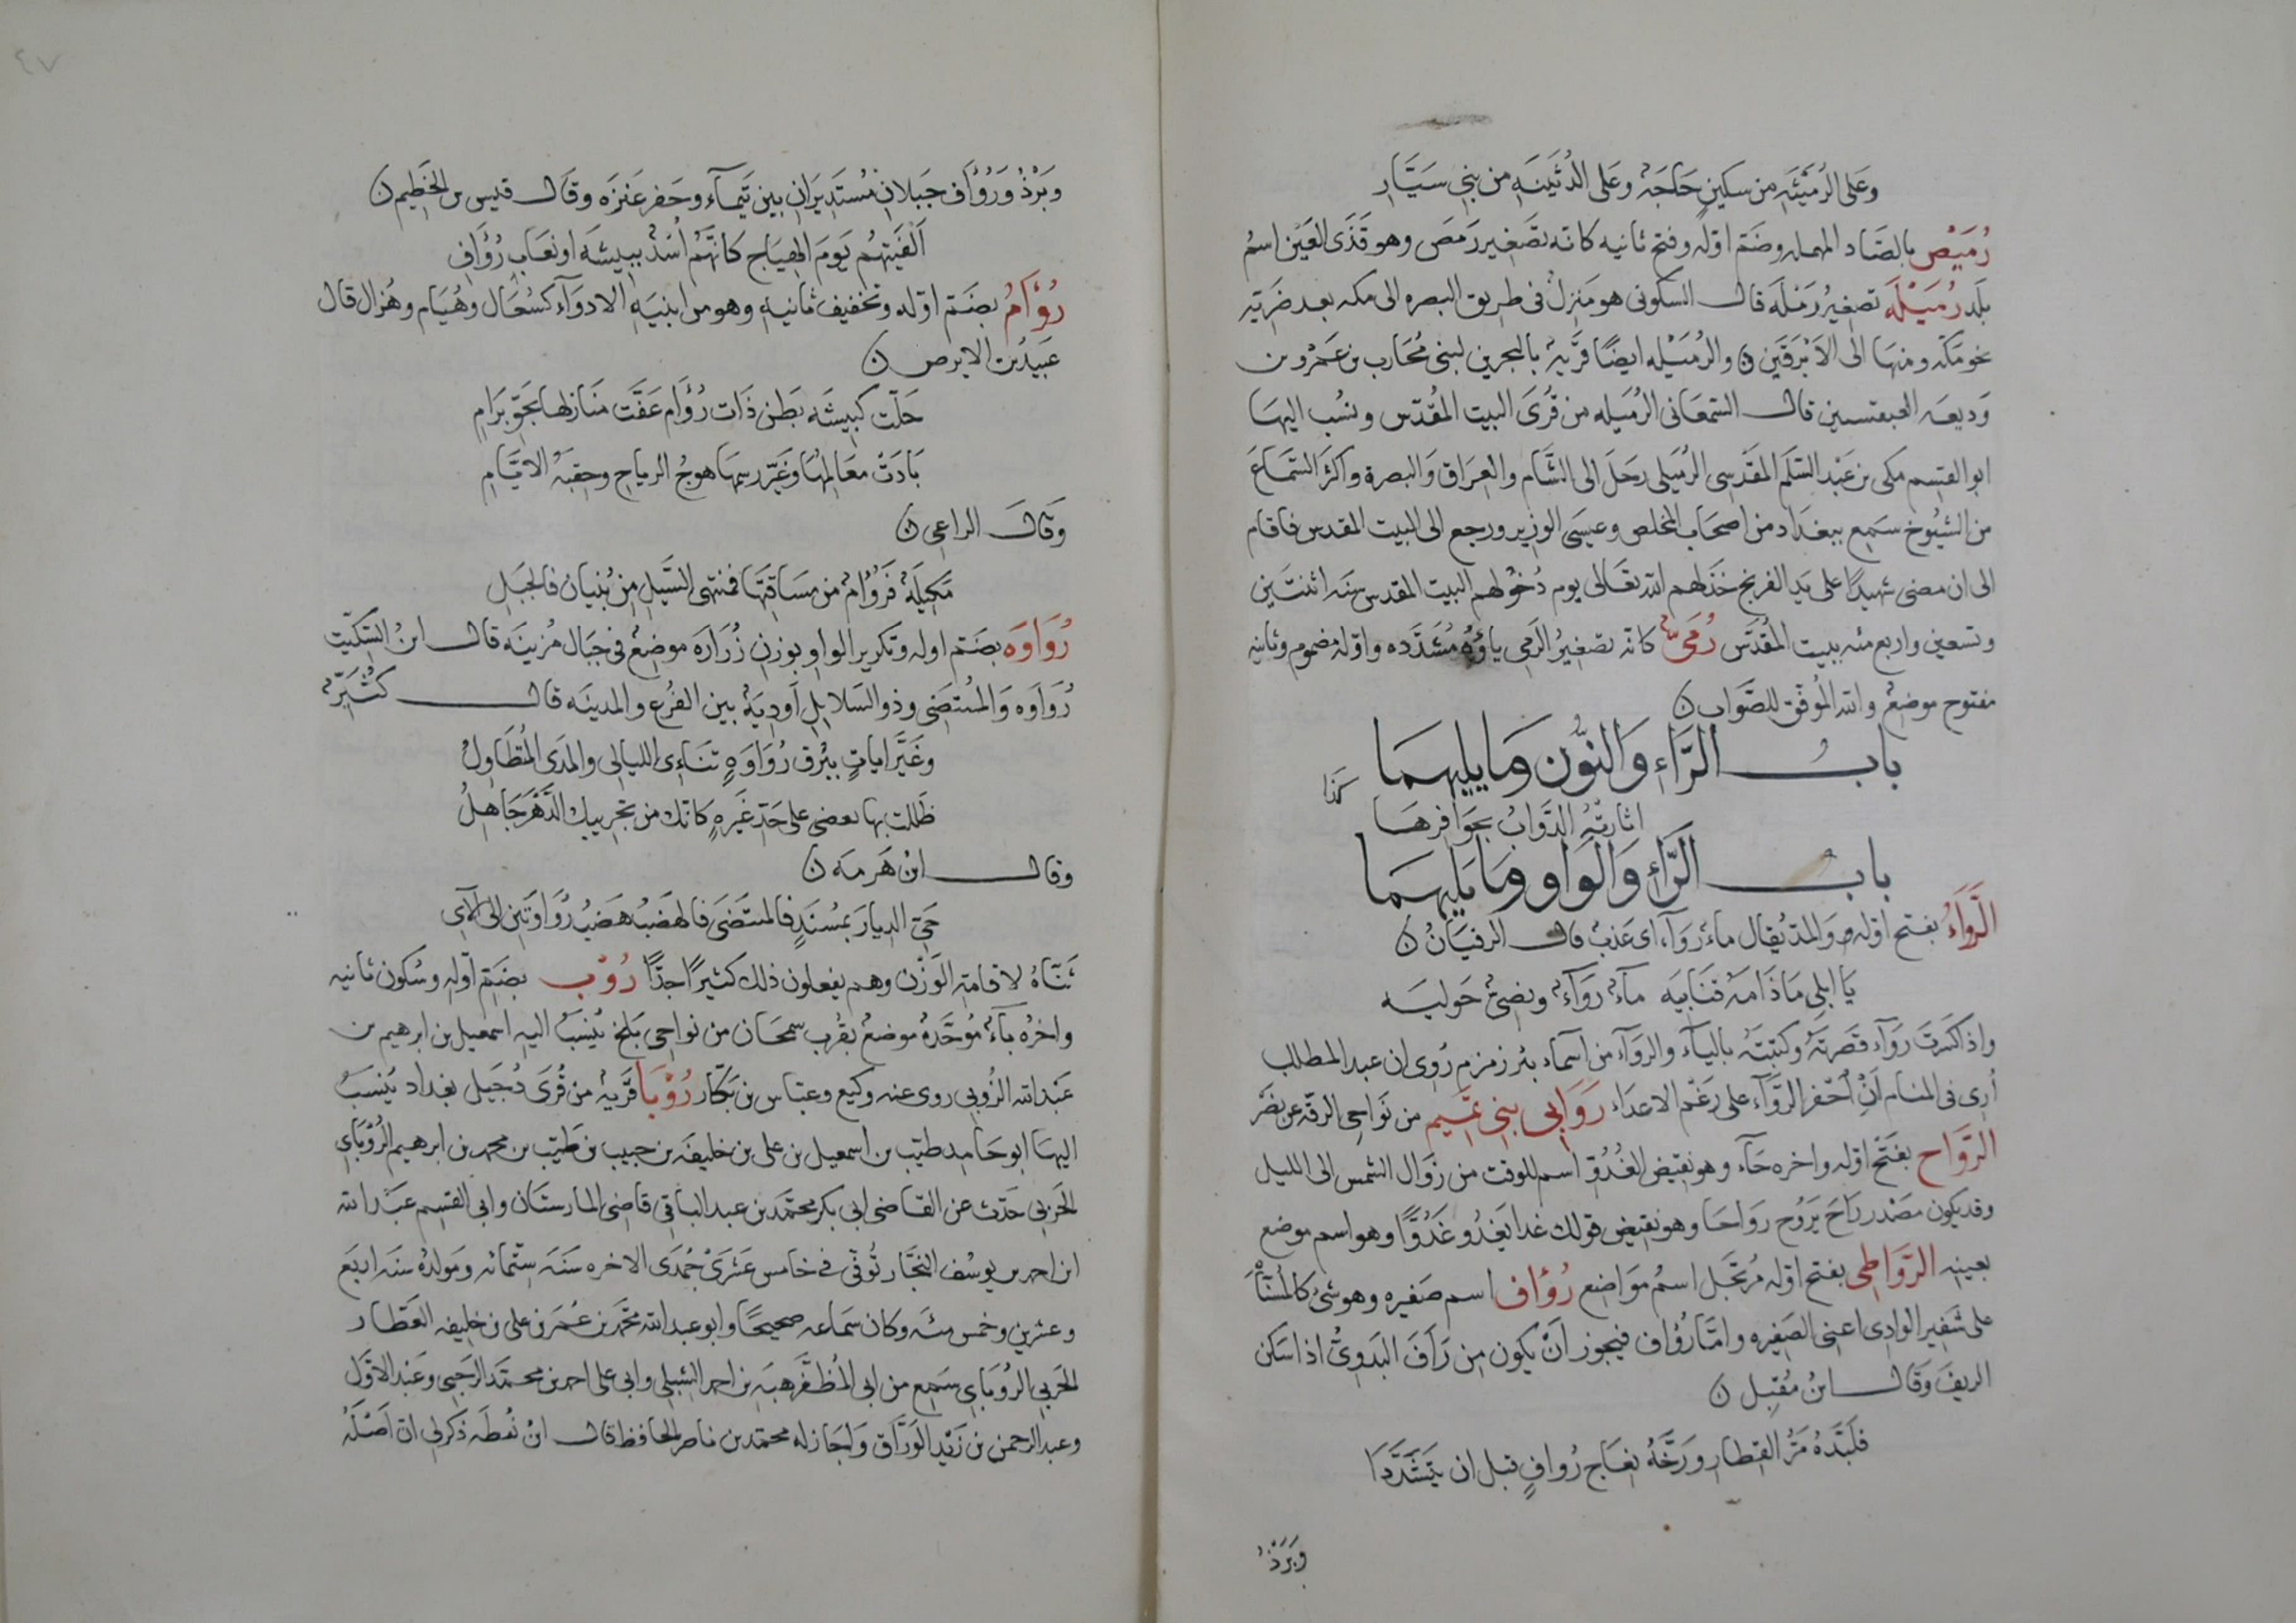 وعلى الرميثه من سكين حاجة وعلى الدثينه من بني سيار
رميص بالصاد المهمله وضم اوله وفتح ثانيه كانه تصغير رمص وهو قذى العين اسم
بلد رميله تصغير رمله قال السكوني هو منزل في طريق البصره الى مكه بعد ضريه
نحو مكه ومنها الى الابرقين ن والرميله ايضا قرية بالبحرين لبني محارب بن عمرو بن
وديعه العبقسيين قال السمعاني الرميله من قرى البيت المقدس ونسب اليها
ابو القسم مكي بن عبد السلم المقدسي الرميلي رحل الى الشام والعراق والبصرة واكثر السماع
من الشيوخ سمع ببغداد من اصحاب المخلص وعيسى الوزير ورجع الى البيت المقدس فاقام
الى ان مضى شهيدا على يد الفرنج خذلهم الله تعالى يوم دخولهم البيت المقدس سنه اثنتين
وتسعين واربع مئه ببيت المقدس رمي كانه تصغير الرمي ياؤه مشدده واوله مضموم وثانيه
مفتوح موضع والله الموفق للصواب ن
باب الراء والنون وما يليهما
كذا
اثارته الدواب بحوافرها
باب الراء والواو وما يليهما
الرواء بفتح اوله والمد يقال ماء روآء اى عذب قال الزفيان ن
يا ابلي ما ذامه فتابيه مآء روآء ونصي حوليه
واذا كسرت رواء قصرته وكتبته بالياء والروآء من اسماء بئر زمزم روى ان عبد المطلب
أرى في المنام ان احفر الروآء على رغم الاعداء روابي بني تميم من نواحي الرقة عن نصر
الرواح بفتح اوله واخره حاء وهو نقيض الغدو اسم للوقت من زوال الشمس الى الليل
وقد يكون مصدر راح يروح رواحا وهو نقيض قولك غدا يغدو غدوا وهو اسم موضع
بعينه الرواطي بفتح اوله مرتجل اسم مواضع رؤاف اسم صفيره وهو شئ كالمسناة
على شفير الوادي اعنى الصفيره واما رؤاف فيجوز ان يكون من رأف البدوي اذا سكن
الريف وقال ابن مقبل ن
فلبده مر القطار ورخه نعاج رواف قبل ان يتشددا
وبرذ
٤٧
وبرذ ورؤاف جبلان مستديران بين تيمآء وحفر عنزه وقال قيس بن الخطيم ن
الفيتهم يوم الهياج كانهم اسد ببيشه او نعاب رؤاف
رؤام بضم اوله وتخفيف ثانيه وهو من ابنيه الادوآء كسعال وهيام وهزال قال
عبيد بن الابرص ن
حلت كبيشه بطن ذات رؤام عفت منازلها بجو برام
بادت معالمها وغير رسمها هوج الرياح وحقبه الايام
وقال الراعي ن
مكيله فرؤام من مساقتها فمنتهى السيل من بنيان فالحبل
رواوه بضم اوله وتكرير الواو بوزن زراره موضع في جبال مزينه قال ابن السكيت
رواوه والمنتضى وذو السلايل اودية بين الفرع والمدينه قال كثير
وغير ايات ببرق رواوه تناءى الليالي والمدى المتطاول
ظللت بها تغضى على حد غيره كانك من تجريبك الدهر جاهل
وقال ابن هرمه ن
حي الديار بمسند فالمنتضى فالهضب هضب رواوتين الى لاي
ثناه لاقامة الوزن وهم يفعلون ذلك كثيرا جدا روب بضم اوله وسكون ثانيه
واخره بآء موحدة موضع بقرب سمحان من نواحي بلخ ينسب اليه اسمعيل بن ابرهيم بن
عبد الله الروبي روى عنه وكيع وعباس بن بكار روبا قرية من قرى دجيل بغداد ينسب
اليها ابو حامد طيب بن اسمعيل بن علي بن خليفه بن حبيب بن طيب بن محمد بن ابرهيم الروباي
الحربي حدث عن القاضي ابي بكر محمد بن عبد الباقي قاضي المارستان وابي القسم عبد الله
ابن احمد بن يوسف النجار توفي في خامس عشرى جمدى الاخره سنه ستمائه ومولده سنه اربع
وعشرين وخمس مئه وكان سماعه صحيحا وابو عبد الله محمد بن عمر بن علي بن خليفه العطار
الحربي الروباي سمع من ابي المظفر هبه بن احمد الشبلي وابي علي احمد بن محمد الرحبي وعبد الاول
وعبد الرحمن بن زيد الوراق واجاز له محمد بن ناصر الحافظ قال ابن نقطه ذكر لي ان اصله